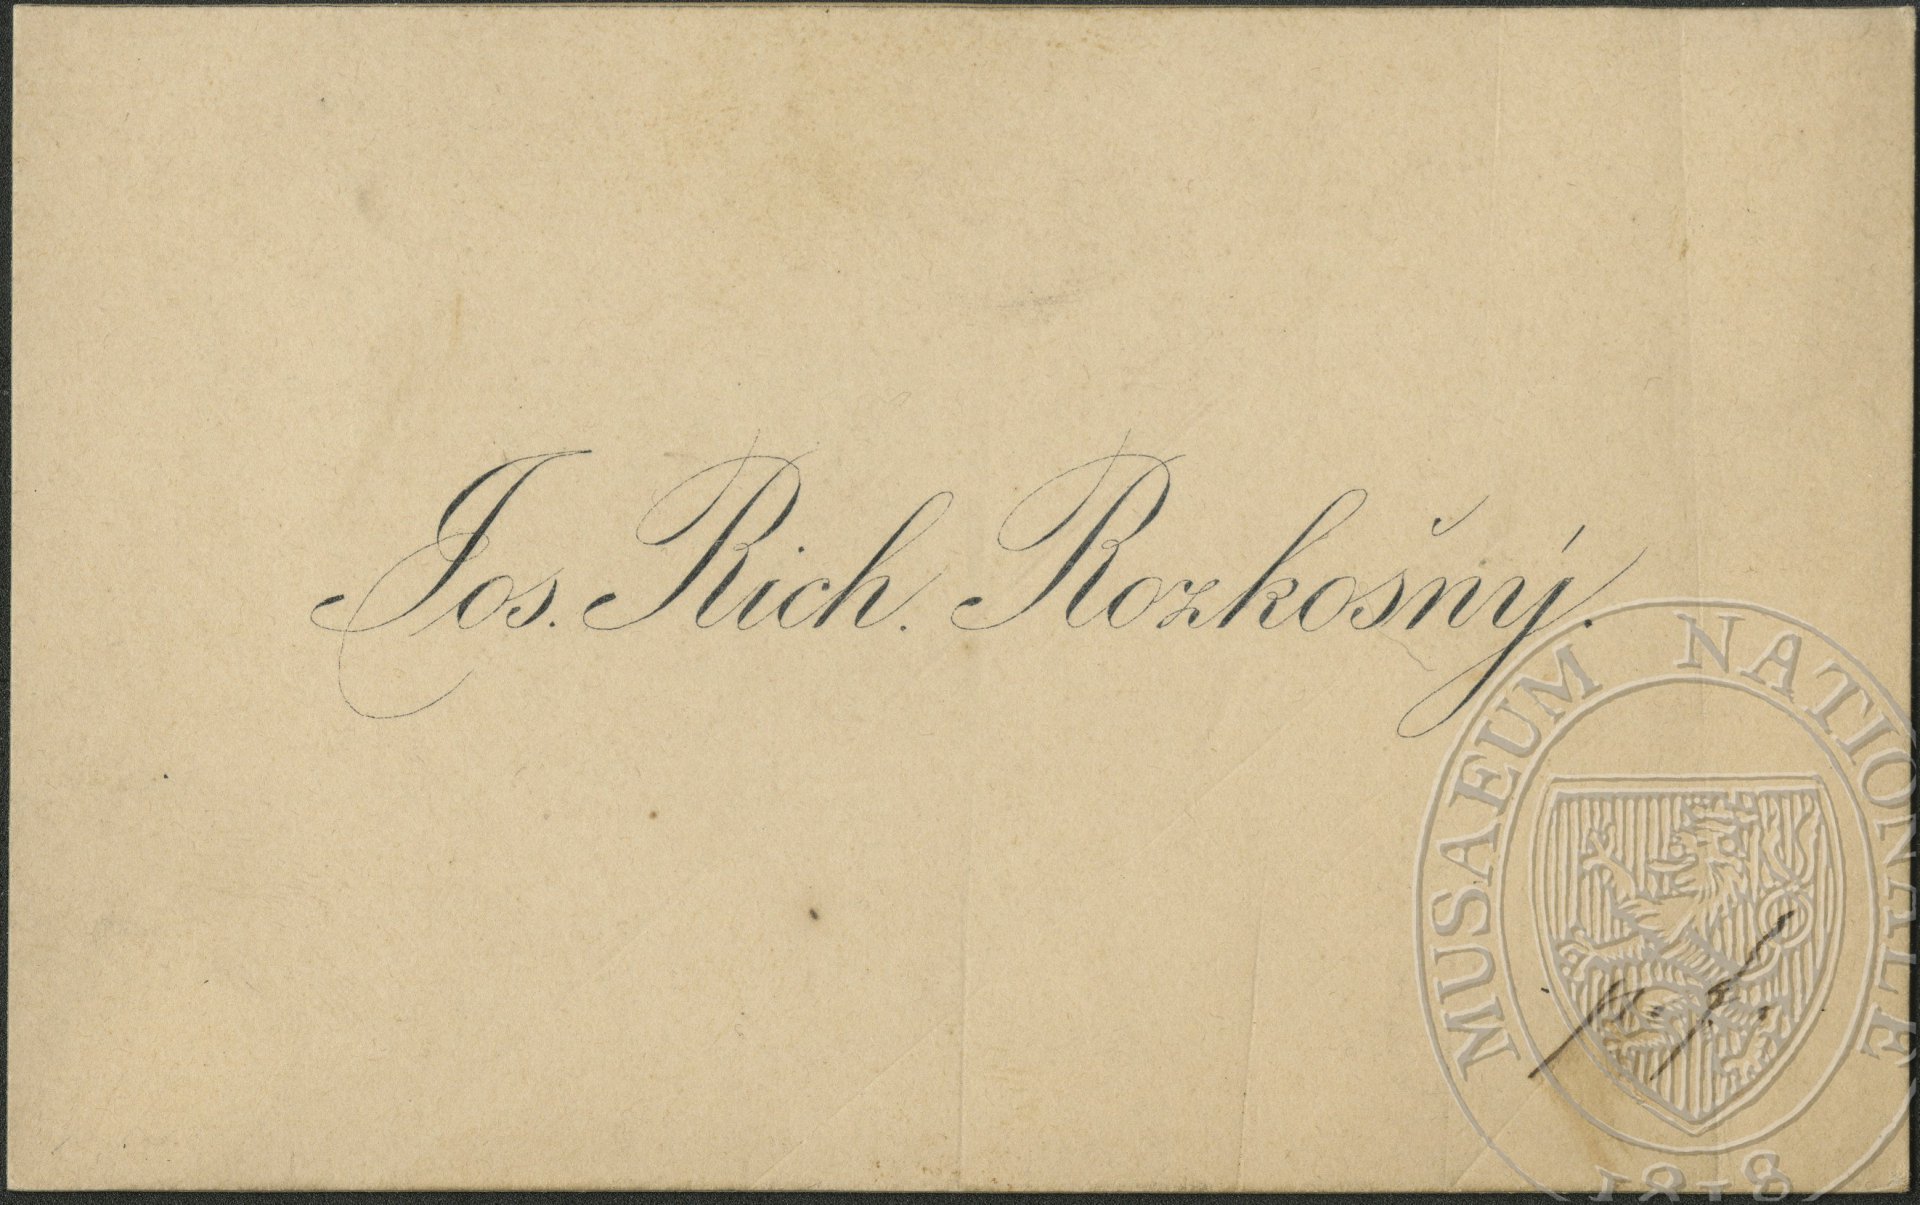 Jos. Rich. Rozkošný.
MUSAEUM NATIONALE
1818